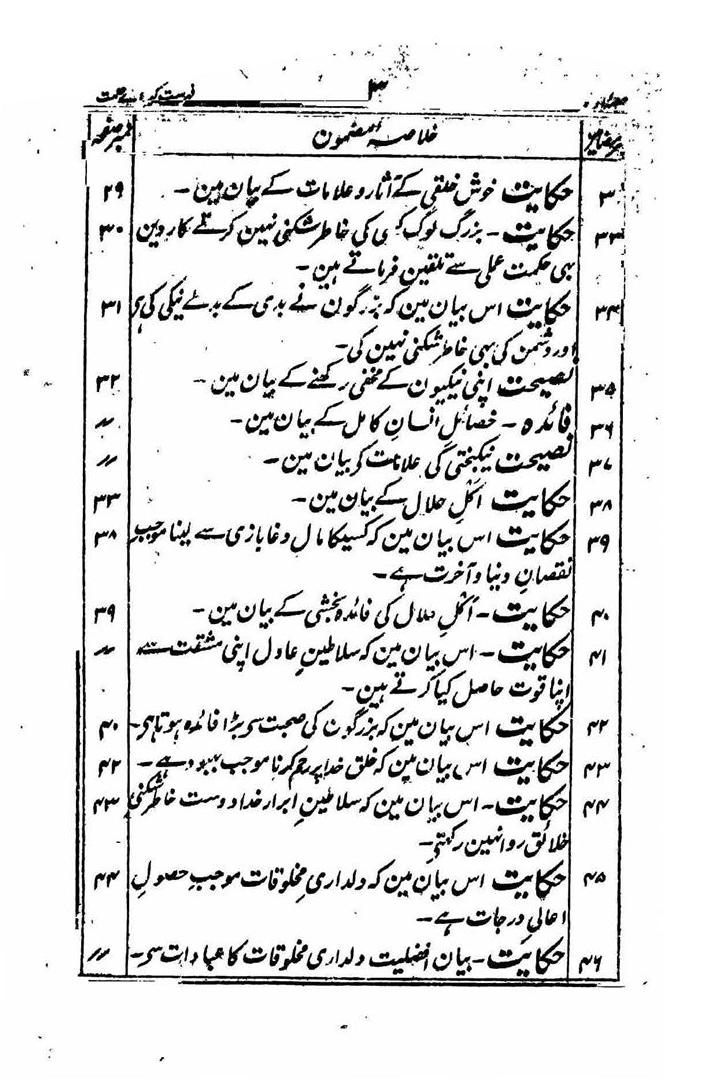 ۳
خلاصہ مضمون
نمبر صفحہ
۳ حکایت خوش خلقی کے آثار و علامات کے بیان مین - ۲۹
۳۳ حکایت - بزرگ لوگ کسی کی خاطر شکنی نہین کرتے کار دین ۳۰
بہی حکمت عملی سے تلقین فرماتے ہین -
۳۴ حکایت اس بیان مین کہ بزرگون نے بدی کے بدلے نیکی کی ہی ۳۱
اور دشمن کی بہی خاطر شکنی نہین کی -
۳۵ نصیحت اپنی نیکیون کے مخفی رکھنے کے بیان مین - ۳۲
۳۶ فائدہ - خصائل انسانِ کامل کے بیان مین - //
۳۷ نصیحت نیکبختی کی علامات کے بیان مین - //
۳۸ حکایت اکلِ حلال کے بیان مین - ۳۳
۳۹ حکایت اس بیان مین کہ کسیکا مال دغابازی سے لینا موجب ۳۸
نقصانِ دنیا و آخرت ہے -
۴۰ حکایت - اکلِ حلال کی فائدہ بخشی کے بیان مین - ۳۹
۴۱ حکایت - اس بیان مین کہ سلاطینِ عادل اپنی مشقت سے //
اپنا قوت حاصل کیا کرتے ہین -
۴۲ حکایت اس بیان مین کہ بزرگون کی صحبت سی بڑا فائدہ ہوتا ہی - ۴۰
۴۳ حکایت اس بیان مین کہ خلق خدا پر رحم کرنا موجب بہبود ہے - ۴۲
۴۴ حکایت - اس بیان مین کہ سلاطینِ ابرار خدا دوست خاطر شکنی ۴۳
خلائق روا نہین رکہتی -
۴۵ حکایت اس بیان مین کہ دلداری مخلوقات موجب حصولِ ۴۴
اعالیِ درجات ہے -
۴۶ حکایت - بیان افضلیت دلداری مخلوقات کا عبادات سی - //